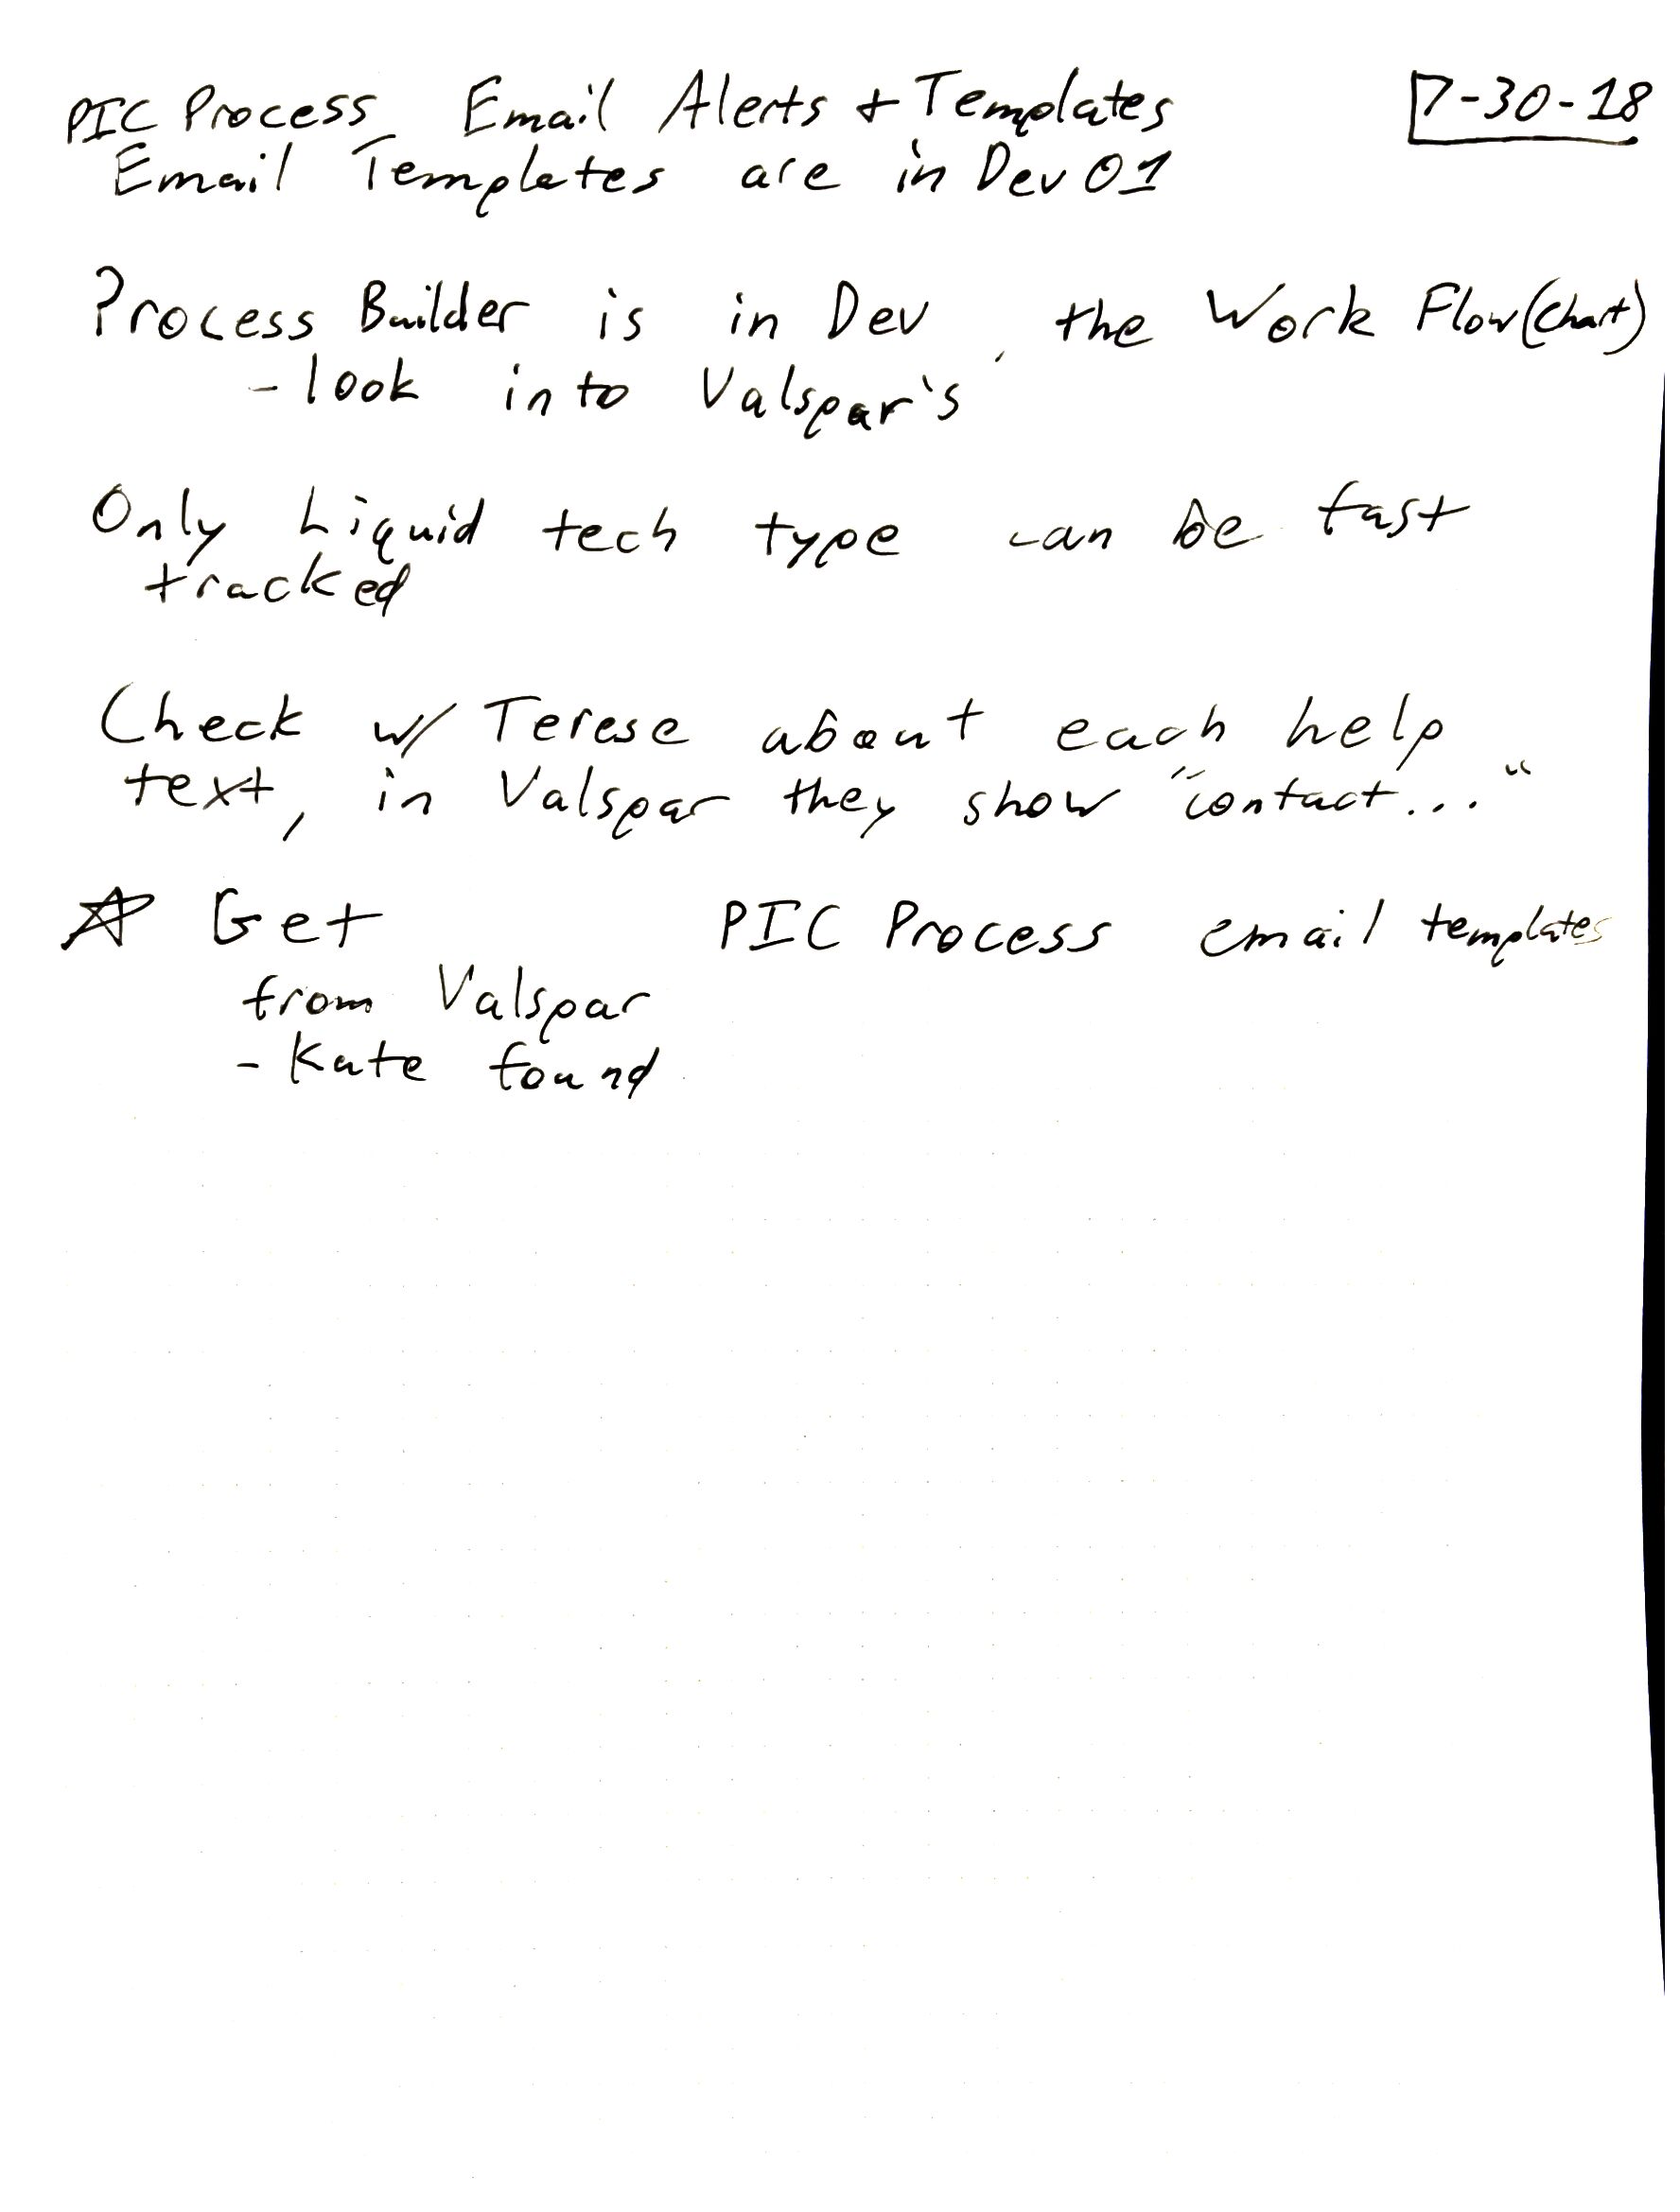 PIC Process Email Alerts + Templates 7-30-18
Email Templates are in Dev 01
Process Builder is in Dev, the Work Flow (Chart)
- look into Valspar's
Only Liquid tech type can be fast
tracked
Check w/ Terese about each help
text, in Valspar they show "contact..."
☆ Get PIC Process email templates
from Valspar
- Kate found